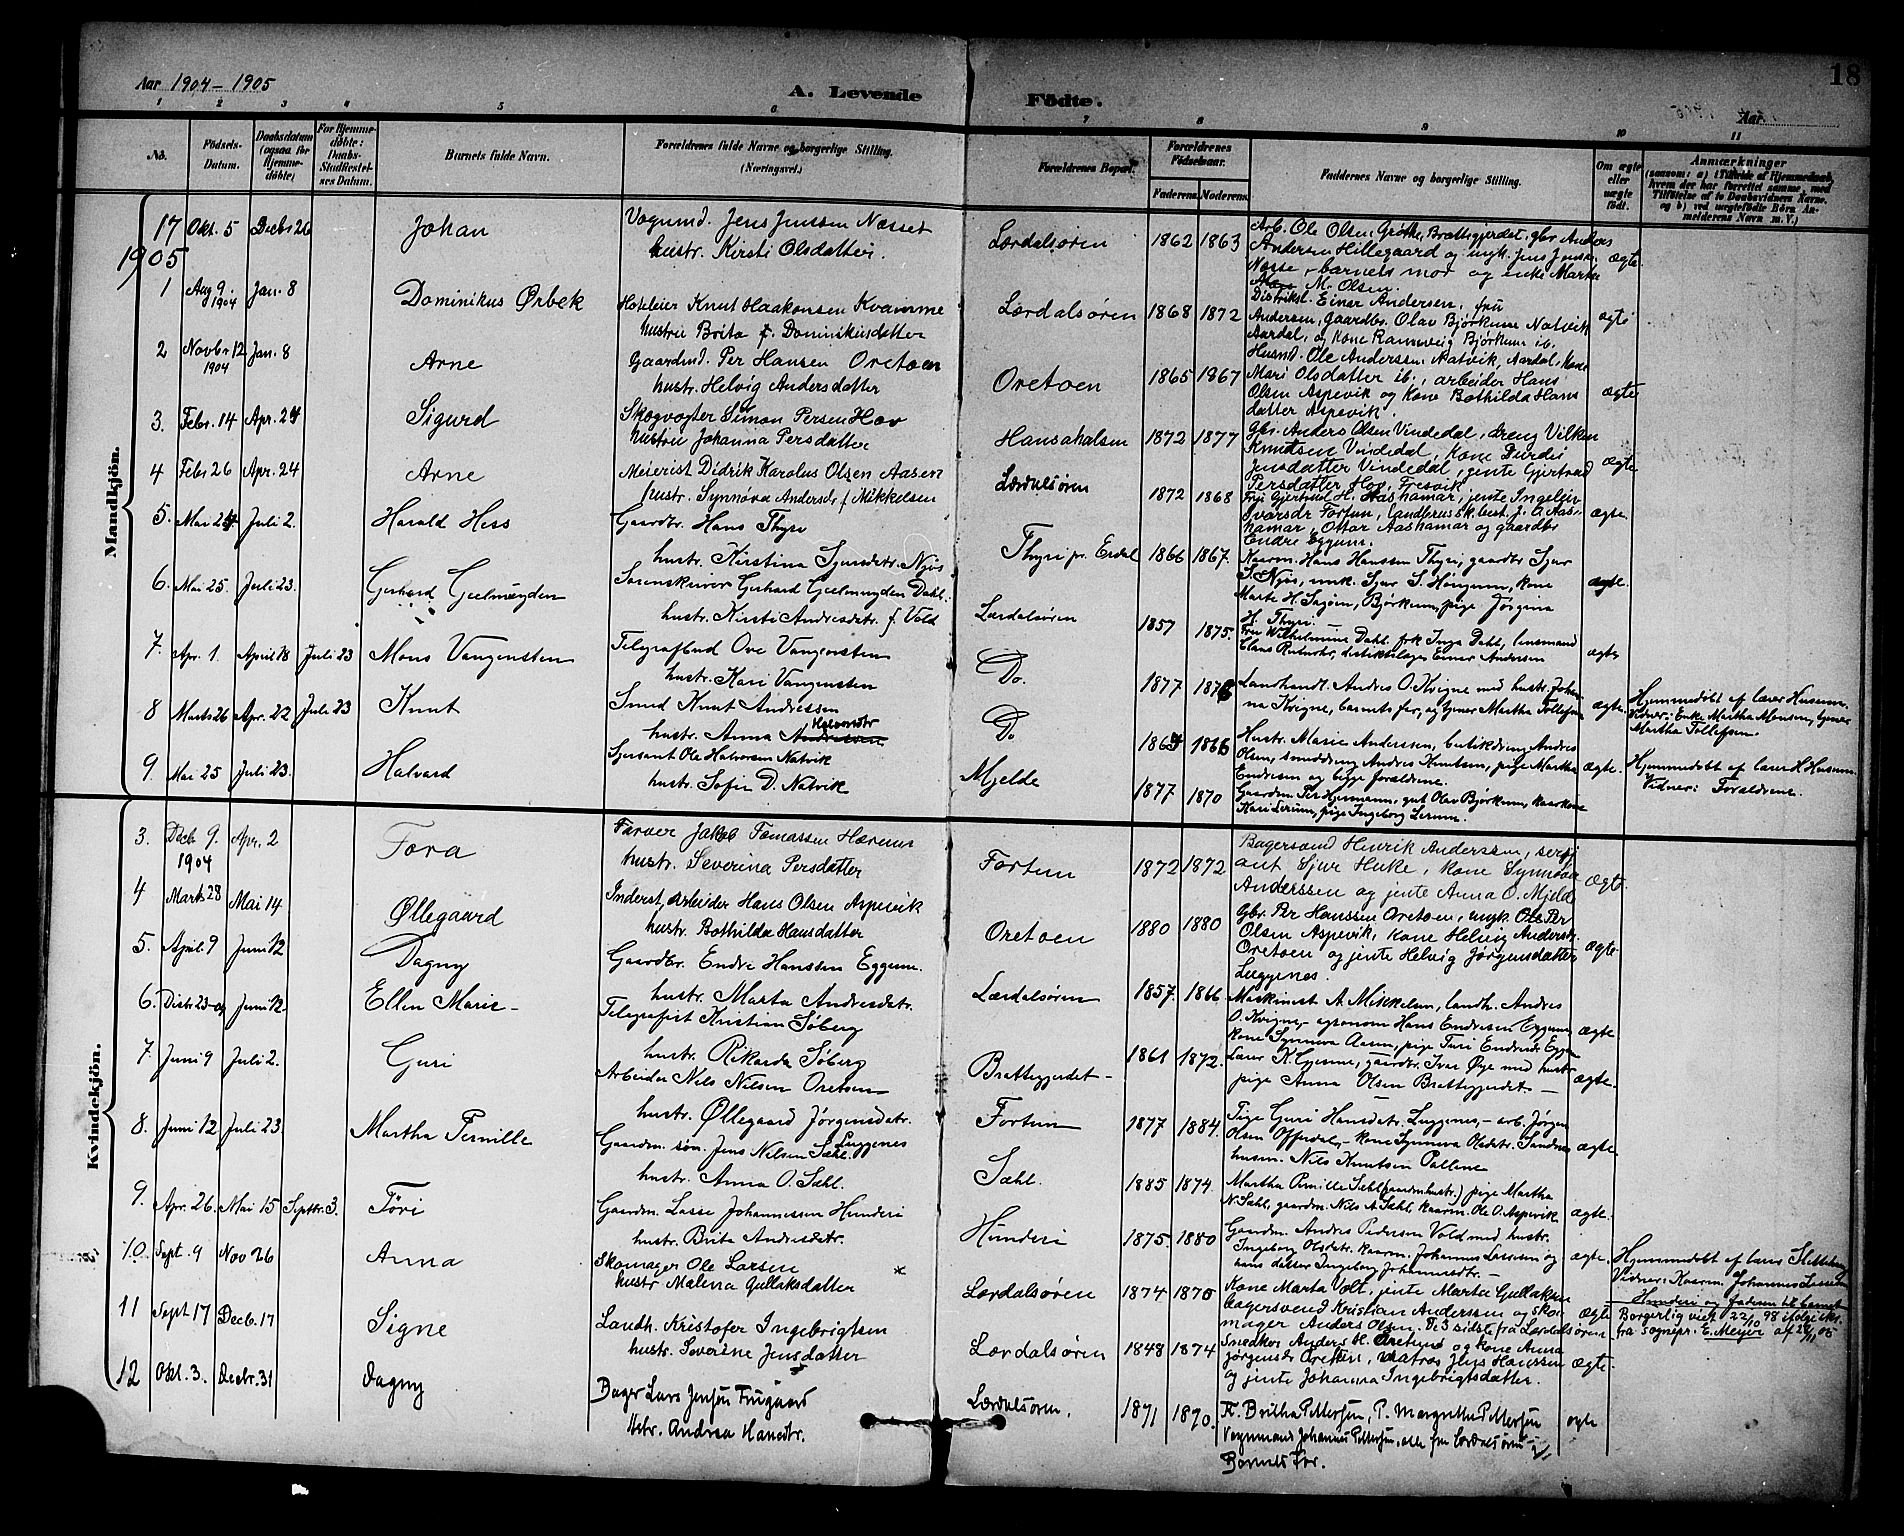 Aar 1904 - 1905
A. Levende Födte.
18
Aar
1 2 3 4 5 6 7 8 9 10 11
No.
Födsels-Datum.
Daabsdatum (ogsaa for Hjemme-döbte)
For Hjemme-döbte: Daabs-Stadfæstel-ses Datum.
Barnets fulde Navn.
Forældrenes fulde Navne og borgerlige Stilling. (Næringsvei.)
Forældrenes Bopæl.
Forældrenes Födselsaar.
Faderens. Moderens.
Faddernes Navne og borgerlige Stilling.
Om ægte eller uægte födt.
Anmærkninger
Mandkjön.
17 Okt. 5 Decbr 26 Johan
Vognmd. Jens Jensen Næsset
hustr. Kirsti Olsdatter.
Lærdalsören 1862 1863
Arb. Ole Olsen Gröthe, Brattegjerdet, gbr Anders
Andersen Hillegaard og ungk. Jens Jensen
Næsse, barnets mor og enke Martha
M. Olsen.
ægte
1905
1 Aug 9. 1904 Jan. 8 Dominikus Ørbek
Hoteleier Knut Haakonsen Kvamme
hustru Brita f. Dominikusdatter
Lærdalsören 1868 1872
Distriktsl. Einar Andersen, fru
Andersen, gaardbr. Olav Bjørkum Natvik
Aardal, og kone Rannveig Bjørkum ib.
ægte
2 Novbr 12 1904 Jan. 8 Arne
Gaardmd. Per Hansen Oretoen
hustr. Helvig Andersdatter
Oretoen 1865 1867
Husmd. Ole Anderssen Natvik, Aardal, kone
Mari Olsdatter ib., arbeider Hans
Olsen Aspevik og kone Bothilda Hans
datter Aspevik.
ægte
3. Febr. 14 Apr. 24 Sigurd
Skogvogter Simon Persen Hov
hustru Johanna Persdatter
Hansahalsen 1872 1877
Gbr. Anders Olsen Vindedal, dreng Vilken
Knudsen Vindedal, kone Durdei
Jensdatter Vindedal, jente Gjertrud
Persdatter Hov, Fresvik
ægte
4 Febr 26 Apr. 24 Arne
Meierist Didrik Karolus Olsen Aasen
hustr. Synnöva Andersdr f. Mikkelsen
Lærdalsören 1872 1868
Frk Gjertrud H. Aashamar, jente Ingeleiv
Iversdr Fortun, Landbrugssk.best. J. O. Aas-
hamar, Ottar Aashamar og gaardbr
Endre Eggum.
ægte.
5. Mai 24 Juli 2. Harald Hess
Gaardbr. Hans Thyri
hustr. Kirstina Sjursdatr. Njøs
Thyri pr. Erdal 1866 1867.
Kaarm. Hans Hanssen Thyri, gaardbr Sjur
S. Njøs, unk. Sjur S. Høngum, kone
Marte H. Sagen, Bjørkum, pige Jörgina
H. Thyri.
ægte.
6. Mai 25. Juli 23. Gerhard Geelmuyden
Sorenskriver Gerhard Geelmuyden Dahl.
hustr. Kirsti Andresdtr. f. Vold
Lærdalsören 1857 1875.
Fru Wilhelmine Dahl, frk Inga Dahl, lensmand
Claus Restordr, distriktslæge Einar Andersen
ægte
7. Apr. 1. April 18 Juli 23 Mons Vangensten
Telegrafbud Ove Vangensten
hustr. Kari Vangensten
Do. 1877 1876
Landhandl. Andres O. Kvigne med hustr. Johan
na Kvigne, barnets far, og tjener Martha Tollefsen
ægte.
Hjemmedöbt af lærer Husum.
Vidner: Enke Martha Monsen, tjener
Martha Tollefsen.
8 Marts 26 Apr. 22 Juli 23 Knut
Smed Knut Andressen
hustr. Anna Andressen Halvorsdtr
Do 1867 1866
Hustr. Marie Anderssen, butikdreng Andres
Olsen, smeddreng Andres Knutsen, pige Martha
Endresen og begge forældrene.
ægte.
Hjemmedöbt af lærer H. Husum.
Vidner: Forældrene.
9. Mai 25 Juli 23. Halvard
Sersant Ole Halvorsen Natvik
hustr. Sofie D. Natvik
Mjelde 1877 1870
Gaardm. Per Hermann, gut Olav Bjørkum, kaarkone
Kari Lerum, pige Ingeborg Lerum.
Kvindekjön.
3. Decb. 9. 1904 Apr. 2 Tora
Farver Jakob Tomassen Hærum
hustr. Severina Persdatter
Fortun 1872 1872
Bagersvend Henrik Anderssen, serj
ant Sjur Huke, kone Synnöva
Anderssen og jente Anna O. Mjeld
ægte
4 Marts 28 Mai 14 Øllegaard
Inderst, arbeider Hans Olsen Aspevik
hustr. Bothilda Hansdatter
Oretoen 1880 1880
Gbr. Per Hanssen Oretoen, ungk. Ole Per
Olsen Aspevik, kone Helvig Andersdr.
Oretoen og jente Helvig Jørgensdatter
Luggenes.
ægte
5. April 9 Juni 12 Dagny
Gaardbr. Endre Hanssen Eggum.
hustr. Marta Andresdatr.
Lærdalsören 1857. 1866
Maskinist A. Mikkelsen, landh. Andres
O. Kvigne, - agronom Hans Endresen Eggum,
kone Synneva Aasen, pige Turi Endresdr Eggum
ægte.
6. Juni 12. Ellen Marie -
Telegrafist Kristian Söberg
hustr. Rikarda Söberg
Brattegjerdet - 1861 1872.
Lærer K. Gjesme, gaardbr. Ivar Øye med hustr.
pige Anna Olsen Brattegjerdet -
ægte.
7. Juni 9 Juli 2. Guri
Arbeider Nils Nilsen Oretoen
hustr. Øllegaard Jörgensdatr. Luggenes
Fortun 1877 1884.
Pige Guri Hansdatr. Luggenes, - arb. Jörgen
Olsen Offerdal, - kone Synneva Olsdatr. Sandnes
husm. Nils Knutsen Pallene
ægte
8. Juni 12 Juli 23. Martha Pernille
Gaardm. søn Jens Nilsen Sæhl.
hustr. Anna O. Sæhl.
Sæhl. 1885 1874.
Martha Pernille Sæhl (gaardmhustr.) pige Martha
N. Sæhl, gaardm. Nils A. Sæhl, kaarm. Ole O. Aspevik
ægte.
9. Apr. 26. Mai 15 Septbr. 3. Töri
Gaardm. Lasse Johannessen Hunderi
hustr. Brita Andresdatr.
Hunderi 1875. 1880
Gaardm. Andres Pedersen Vold med hustr.
Ingeborg Olsdatr. kaarm. Johannes Lassesen og
hans datter Ingeborg Johannesdtr. -
ægte.
Hjemmedöbt af lærer
Vidner: Kaarm. Johannes Lassesen
Hunderi og faderen til barnet
10. Sept. 9 Nov 26 Anna
Skomager Ole Larsen *
hustr Malena Gullaksdatter
Lærdalsören 1874 1870
Kone Marta Volt, jente Marta Gullaksen
bagersvend Kristian Anderssen og sko
mager Anders Olsen. De 3 sidste fra Lærdalsören.
ægte
Borgerlig viet 22/10 98 ifølge sks.
fra sognepr. E. Meyer af 24/11 05
11 Sept 17 Decb. 17 Signe
Landh. Kristofer Ingebrigtsen
hustr. Severine Jensdatter
Lærdalsören 1848 1874
Snedker Anders H. Oretoen og kone Anna
Jørgensdr Oretoen, matros Jens Hanssen
og jente Johanna Ingebrigtsdatter.
ægte
12 Okt. 3. Decbr. 31 Dagny
Bager Lars Jensen Frugaard
Hstr. Andrea Hansdtr.
Lærdalsören. 1871 1870.
K. Britha Pettersen, P. Margrethe Pettersen
Vognmand Johannes Pettersen, alle fra Lærdalsören
Barnets Far.
ægte